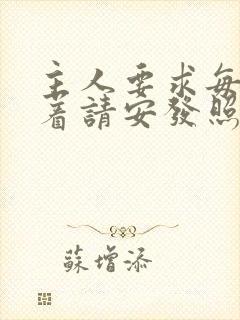 主人要求每
着請安發照
蘇增添